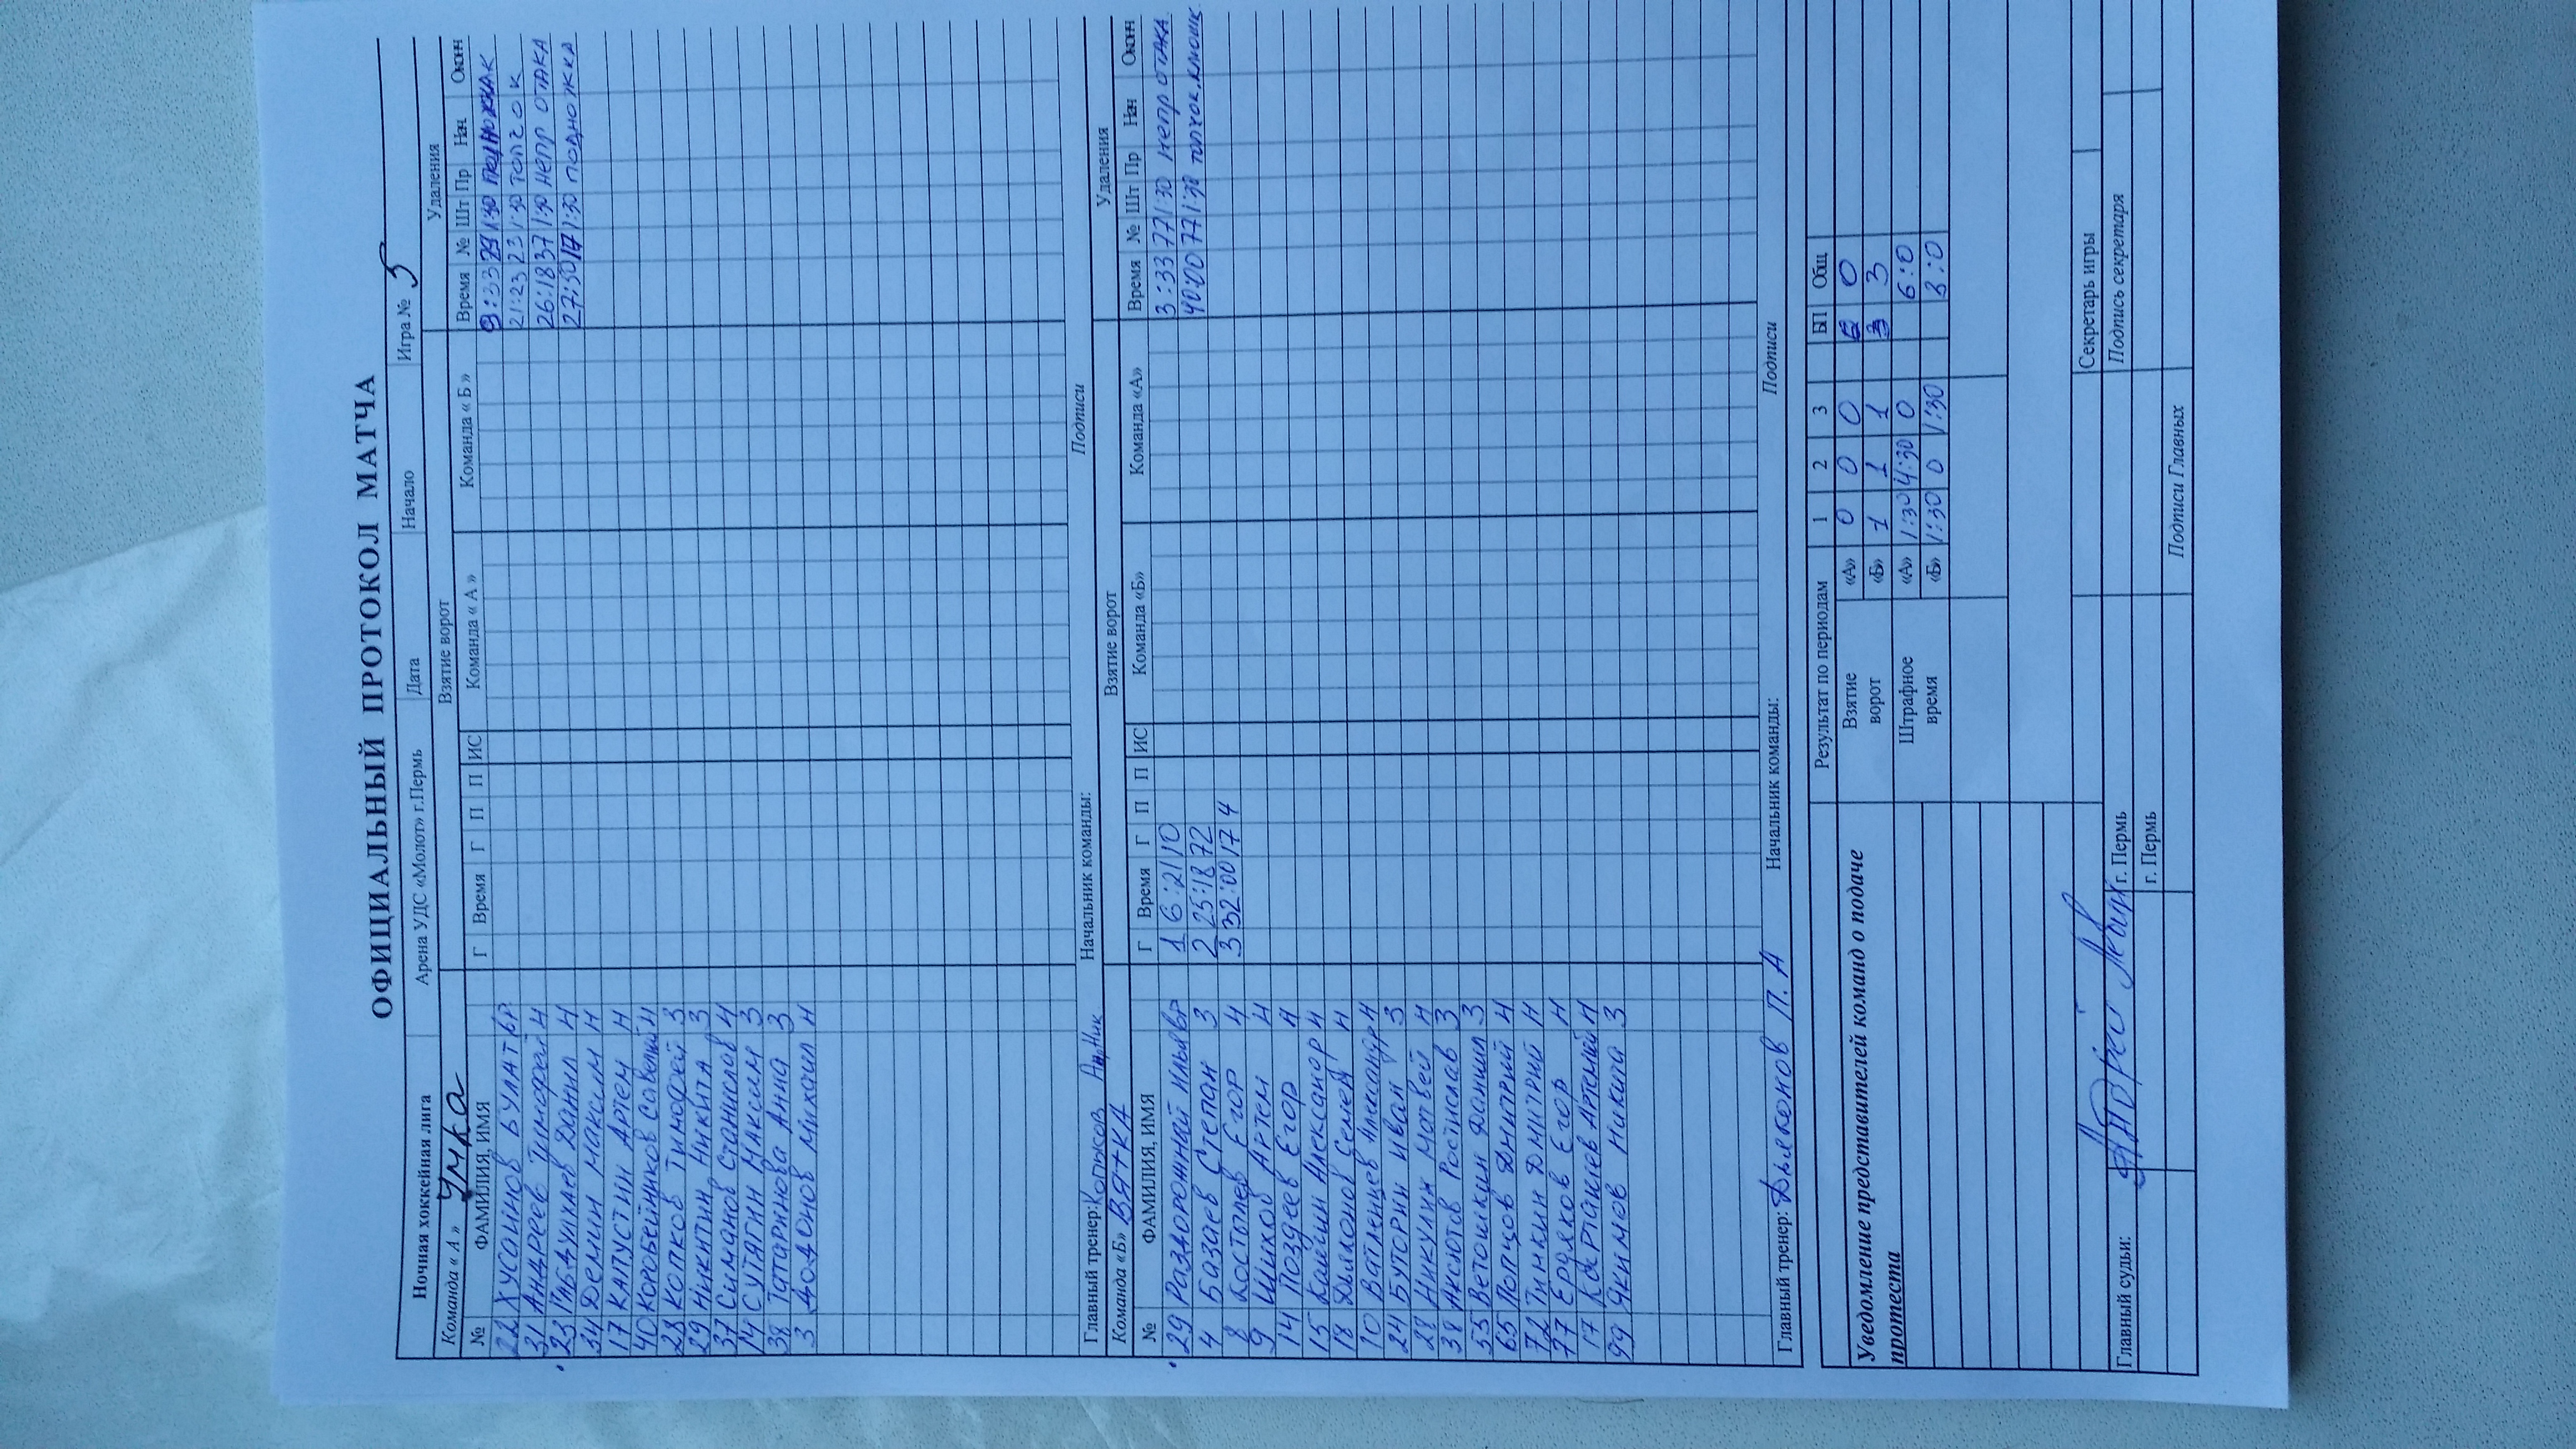 ОФИЦИАЛЬНЫЙ ПРОТОКОЛ МАТЧА
Ночная хоккейная лига Арена УДС «Молот» г.Пермь Дата Начало Игра № 5
Команда « А » Умка Взятие ворот Удаления
№ ФАМИЛИЯ, ИМЯ Г Время Г П П ИС Команда « А » Команда « Б » Время № Шт Пр Нач. Оконч
22 ХУСАИНОВ БУЛАТ вр 9:33 29 1:30
31 Андреев Тимофей Н 21:23 23 1:30 толчок
23 Габдулхаев Данил Н 26:18 37 1:30 непр отака
34 Демин Максим Н 27:30 17 1:30 подножка
17 Капустин Артем Н
40 Коробейников Савелий Н
28 Копков Тимофей З
29 Никитин Никита З
37 Симанов Станислав Н
14 Сутягин Максим З
38 Татаринова Анна З
3 Додонов Михаил Н
Главный тренер: Копысов Начальник команды: Подписи
Команда «Б» ВЯТКА Взятие ворот Удаления
№ ФАМИЛИЯ, ИМЯ Г Время Г П П ИС Команда «Б» Команда «А» Время № Шт Пр Нач Оконч
29 Раздорожный Илья вр 1 6:21 10 3:33 77 1:30 непр отака
4 Базаев Степан З 2 25:18 72 40:00 77 1:30 толчок.клюшк.
8 Костылев Егор Н 3 32:00 17 4
9 Шихов Артем Н
14 Поздеев Егор Н
15 Каншин Александр Н
18 Дьяконов Семен Н
10 Вайленцев Александр Н
24 Буторин Иван З
28 Никулин Матвей Н
38 Аксютов Ростислав З
55 Ветошкин Данил З
65 Попцов Дмитрий Н
72 Тимкин Дмитрий Н
77 Ердяков Егор Н
17 Артемий Н
99 Якимов Никита З
Главный тренер: Дьяконов П.А Начальник команды: Подписи
Результат по периодам 1 2 3 БП Общ
Уведомление представителей команд о подаче протеста
Взятие ворот «А» 0 0 0 0
«Б» 1 1 1 3
Штрафное время «А» 1:30 4:30 0 6:0
«Б» 1:30 0 1:30 3:0
Секретарь игры
Главный судьи: Андрей г. Пермь Подпись секретаря
г. Пермь
Подписи Главных